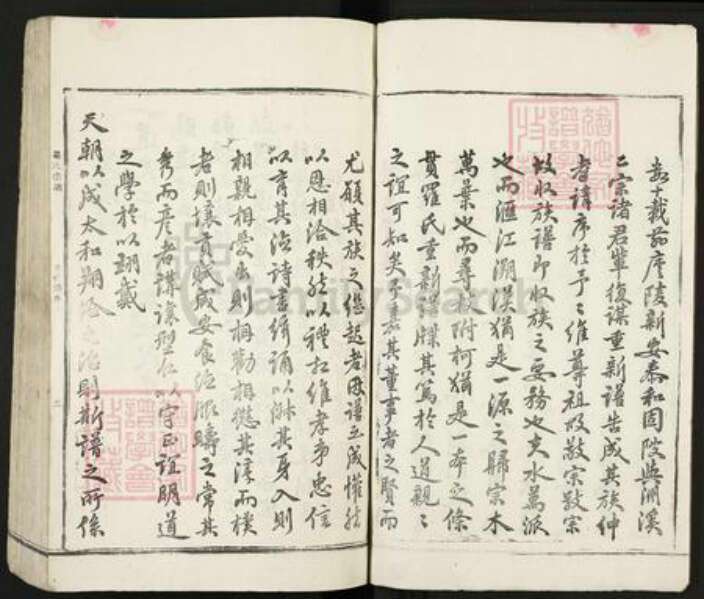 去十載前廬陵新安泰和固陂與洲溪
仁宗諸君輩復謀重新譜告成其族紳
耆請序於予予維尊祖敬宗敬宗
故收族譜即收族之要務也夫水萬派
也而滙江溯漢猶是一源之歸宗木
萬葉也而尋附柯猶是一本之條
貫羅氏重新譜牒其篤於人道親親
之誼可知矣予嘉其董事者之賢而
尤願其族之繼起者毋譜玉成懽然
以恩相洽秩然以禮相維孝弟忠信
以育其德詩書絃誦以淑其身入則
相親相愛出則相勸相懲其淳而樸
者則讓育賦成安食德服疇之常其
秀而彥者講讓型仁以守正誼明道
之學於以翊戴
天朝以成太和翔洽之治則斯譜之所係
羅氏宗譜
二
FamilySearch
譜學會
收藏